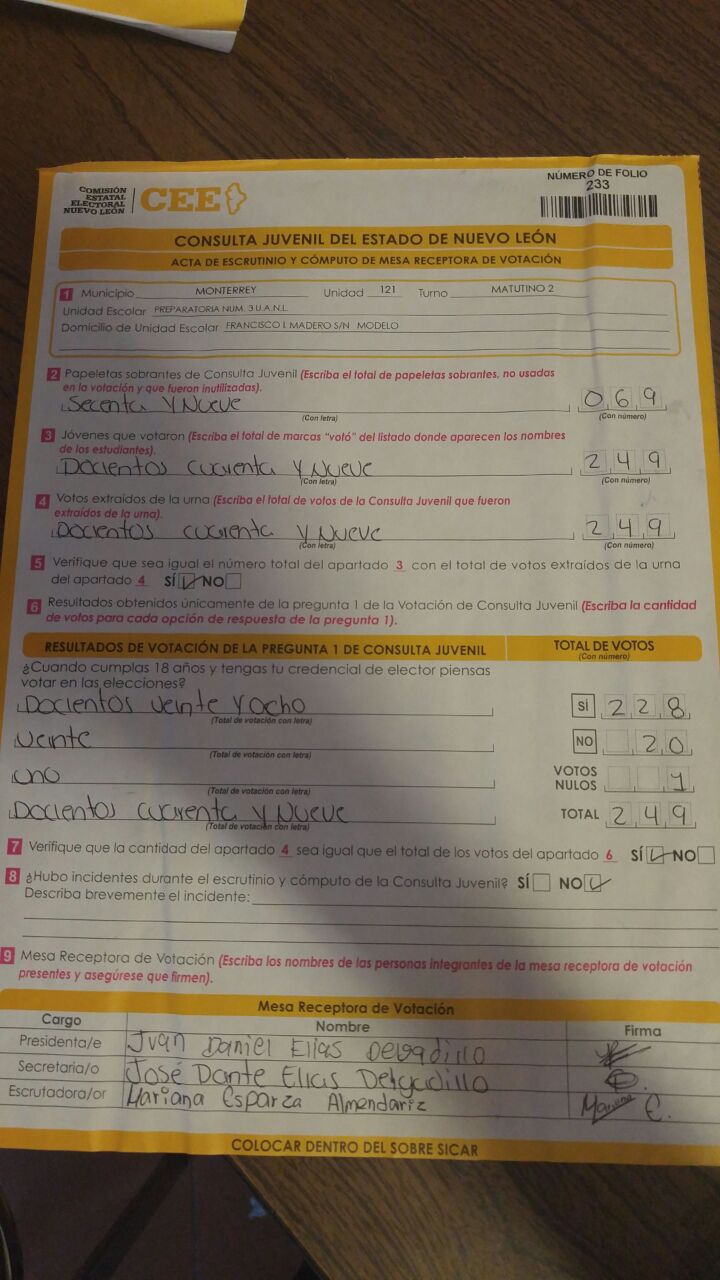 COMISIÓN
ESTATAL
ELECTORAL
NUEVO LEÓN
CEE
NÚMERO DE FOLIO
233
CONSULTA JUVENIL DEL ESTADO DE NUEVO LEÓN
ACTA DE ESCRUTINIO Y CÓMPUTO DE MESA RECEPTORA DE VOTACIÓN
1 Municipio MONTERREY Unidad 121 Turno MATUTINO 2
Unidad Escolar PREPARATORIA NUM. 3 U.A.N.L.
Domicilio de Unidad Escolar FRANCISCO I. MADERO S/N MODELO
2 Papeletas sobrantes de Consulta Juvenil (Escriba el total de papeletas sobrantes, no usadas
en la votación y que fueron inutilizadas).
Secenta y Nueve 069
(Con letra) (Con número)
3 Jóvenes que votaron (Escriba el total de marcas "votó" del listado donde aparecen los nombres
de los estudiantes).
Docientos cuarenta y Nueve 249
(Con letra) (Con número)
4 Votos extraídos de la urna (Escriba el total de votos de la Consulta Juvenil que fueron
extraídos de la urna).
Docientos cuarenta y Nueve 249
(Con letra) (Con número)
5 Verifique que sea igual el número total del apartado 3 con el total de votos extraídos de la urna
del apartado 4 SÍ NO
6 Resultados obtenidos únicamente de la pregunta 1 de la Votación de Consulta Juvenil (Escriba la cantidad
de votos para cada opción de respuesta de la pregunta 1).
RESULTADOS DE VOTACIÓN DE LA PREGUNTA 1 DE CONSULTA JUVENIL TOTAL DE VOTOS
(Con número)
¿Cuando cumplas 18 años y tengas tu credencial de elector piensas
votar en las elecciones?
Docientos veinte y ocho SÍ 228
(Total de votación con letra)
veinte NO 20
(Total de votación con letra)
uno VOTOS NULOS 1
(Total de votación con letra)
Docientos cuarenta y Nueve TOTAL 249
(Total de votación con letra)
7 Verifique que la cantidad del apartado 4 sea igual que el total de los votos del apartado 6 SÍ NO
8 ¿Hubo incidentes durante el escrutinio y cómputo de la Consulta Juvenil? SÍ NO
Describa brevemente el incidente:
9 Mesa Receptora de Votación (Escriba los nombres de las personas integrantes de la mesa receptora de votación
presentes y asegúrese que firmen).
Mesa Receptora de Votación
Cargo Nombre Firma
Presidenta/e Juan Daniel Elias Delgadillo
Secretaria/o José Dante Elias Delgadillo
Escrutadora/or Mariana Esparza Almendariz Mariana E.
COLOCAR DENTRO DEL SOBRE SICAR